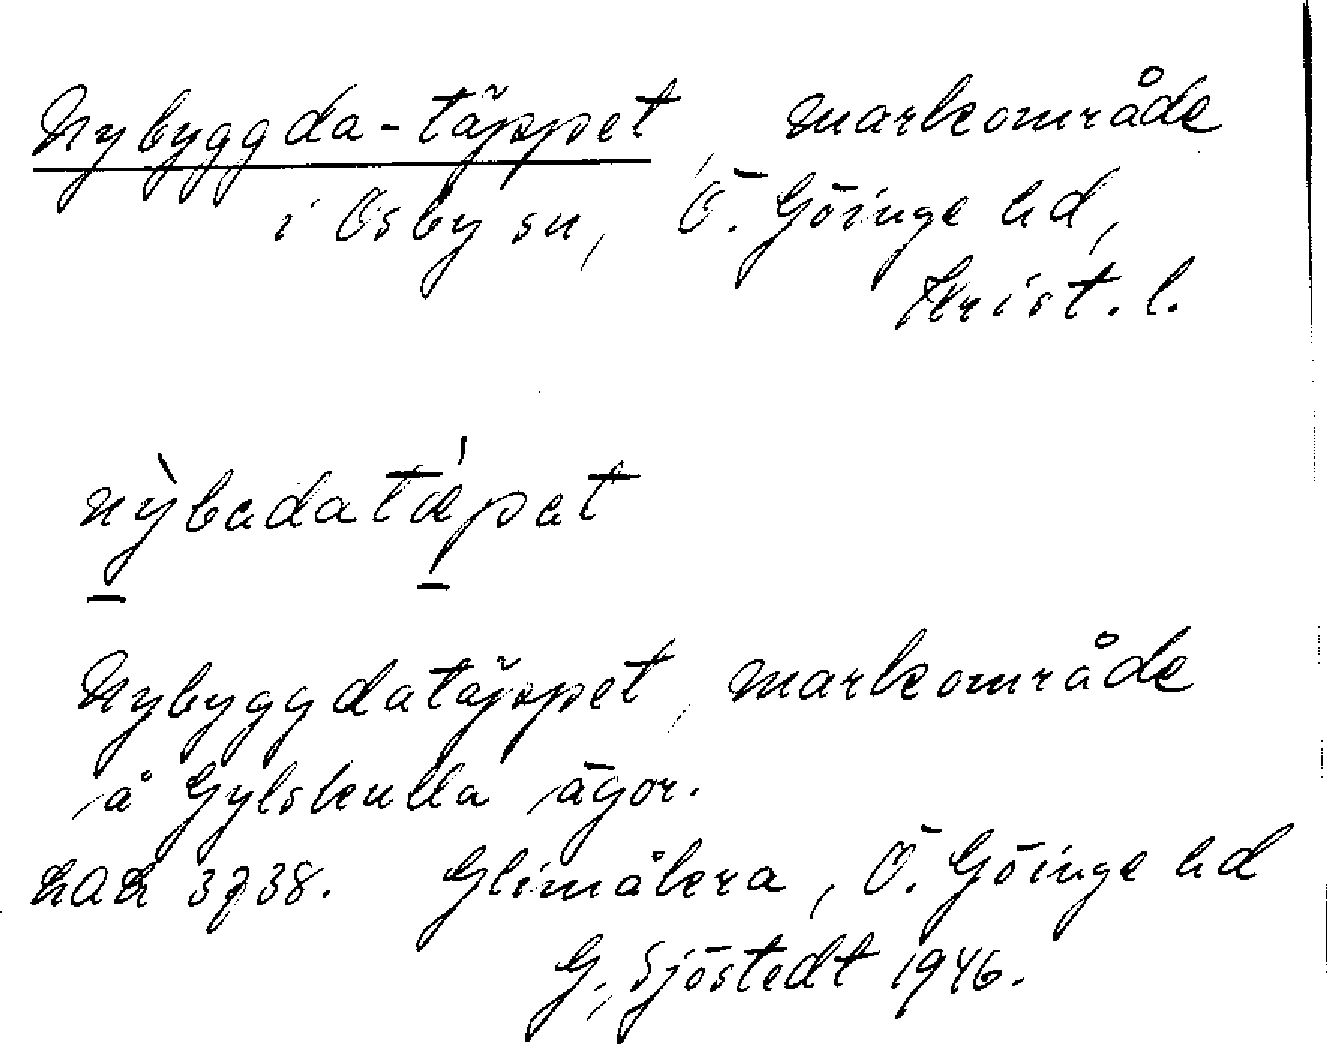 Nybyggda-täppet, markområde
i Osby sn, Ö. Göinge hd,
Krist. l.
nỳbadatǽpat
Nybyggdatäppet, markområde
å Gylskulla ägor.
LAL 3738. Glimåkra, Ö. Göinge hd
G. Sjöstedt 1946.